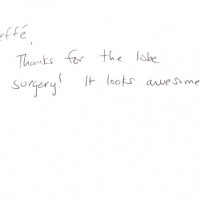 effé,
Thanks for the lobe
surgery! It looks awesome